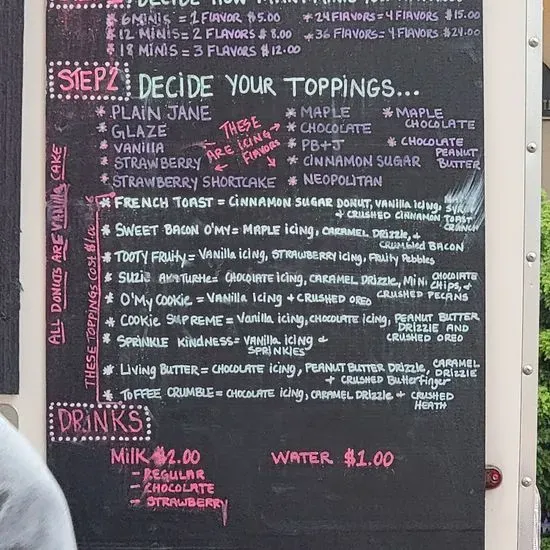 DECIDE HOW MANY MINIS
* 6 MINIS = 1 FLAVOR $5.00 * 24 FLAVORS = 4 FLAVORS $15.00
* 12 MINIS = 2 FLAVORS $8.00 * 36 FLAVORS = 4 FLAVORS $24.00
* 18 MINIS = 3 FLAVORS $12.00
STEP 2 DECIDE YOUR TOPPINGS...
* PLAIN JANE
* GLAZE
* VANILLA
* STRAWBERRY
* STRAWBERRY SHORTCAKE
← THESE →
ARE ICING
← FLAVORS →
* MAPLE
* CHOCOLATE
* PB+J
* CINNAMON SUGAR
* NEOPOLITAN
* MAPLE
CHOCOLATE
* CHOCOLATE
PEANUT
BUTTER
ALL DONUTS ARE VANILLA CAKE
THESE TOPPINGS COST
* FRENCH TOAST = CINNAMON SUGAR DONUT, VANILLA ICING,
+ CRUSHED CINNAMON TOAST
CRUNCH
* SWEET BACON O'MY = MAPLE ICING, CARAMEL DRIZZLE, +
CRUMBLED BACON
* TOOTY FRUITY = VANILLA ICING, STRAWBERRY ICING, FRUITY PEBBLES
* SUZIE AKA TURTLE = CHOCOLATE ICING, CARAMEL DRIZZLE, MINI CHOCOLATE
CHIPS, +
CRUSHED PECANS
* O'MY COOKIE = VANILLA ICING + CRUSHED OREO
* COOKIE SUPREME = VANILLA ICING, CHOCOLATE ICING, PEANUT BUTTER
DRIZZLE AND
CRUSHED OREO
* SPRINKLE KINDNESS = VANILLA ICING +
SPRINKLES
* LIVING BUTTER = CHOCOLATE ICING, PEANUT BUTTER DRIZZLE, CARAMEL
DRIZZLE
+ CRUSHED Butterfinger
* TOFFEE CRUMBLE = CHOCOLATE ICING, CARAMEL DRIZZLE + CRUSHED
HEATH
DRINKS
MILK $2.00
- REGULAR
- CHOCOLATE
- STRAWBERRY
WATER $1.00